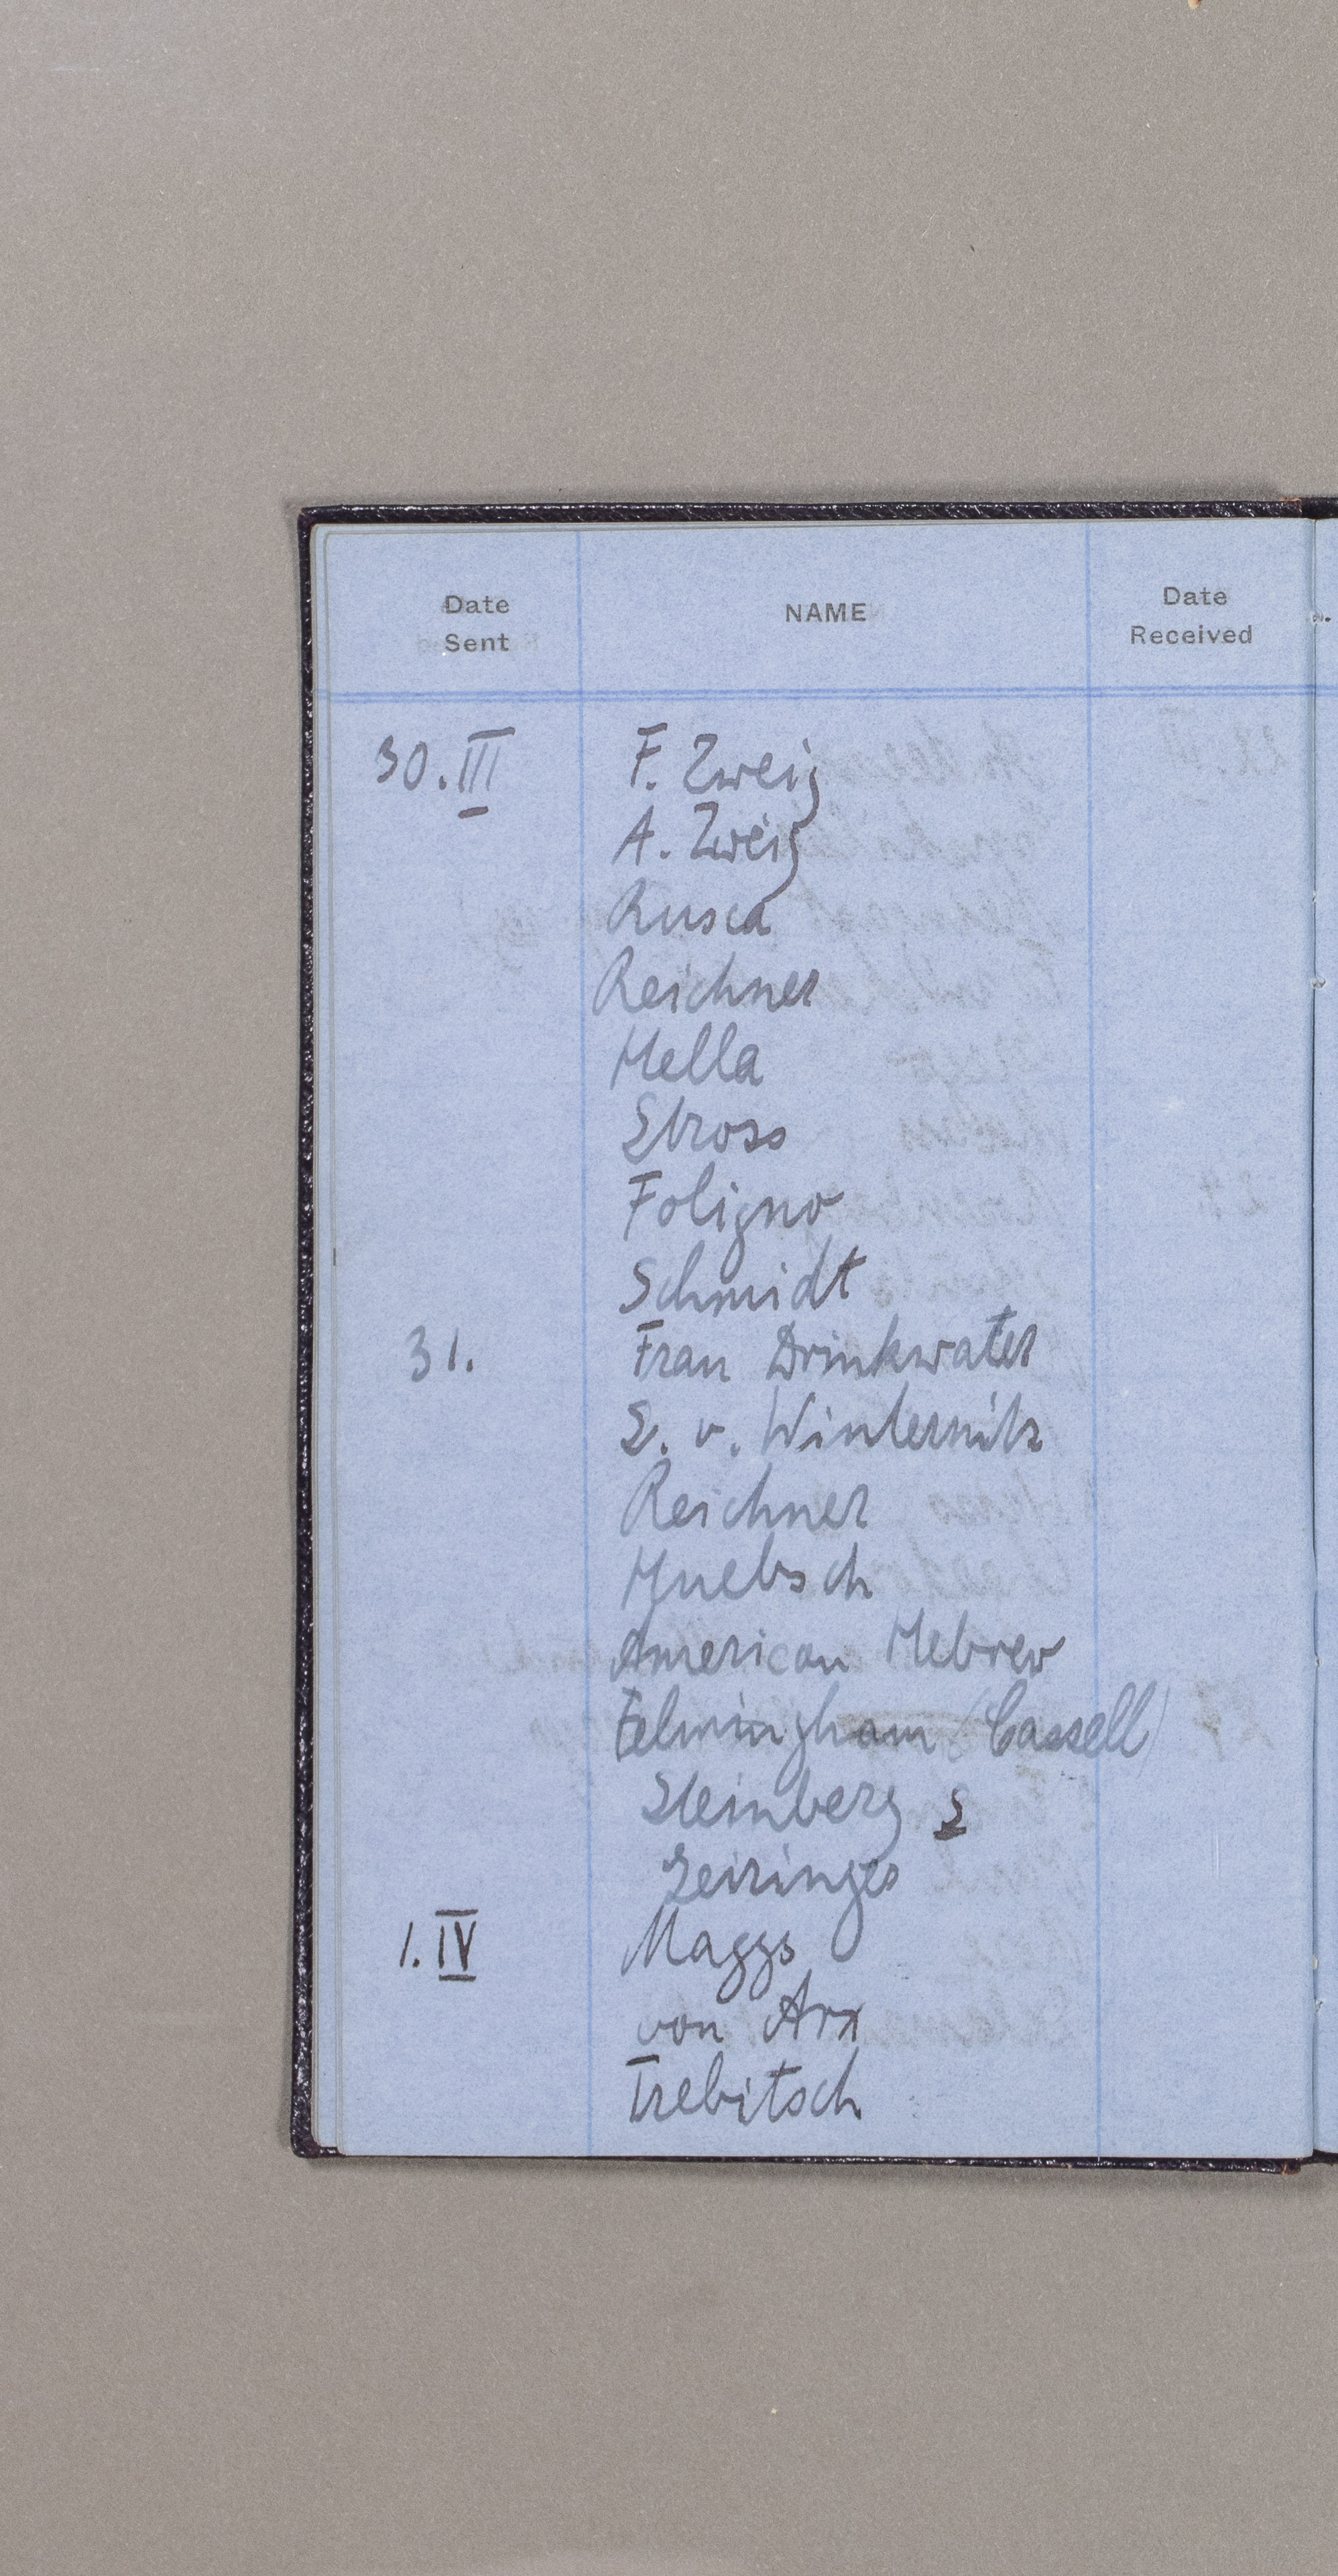 Date Sent NAME Date Received
30. III F. Zweig
A. Zweig
Rusca
Reichner
Hella
Stross
Foligno
Schmidt
31. Frau Drinkwater
S. v. Winternitz
Reichner
Huebsch
American Hebrew
(Cassell)
Steinberg S
Geiringer
1. IV Maggs
von Arx
Trebitsch